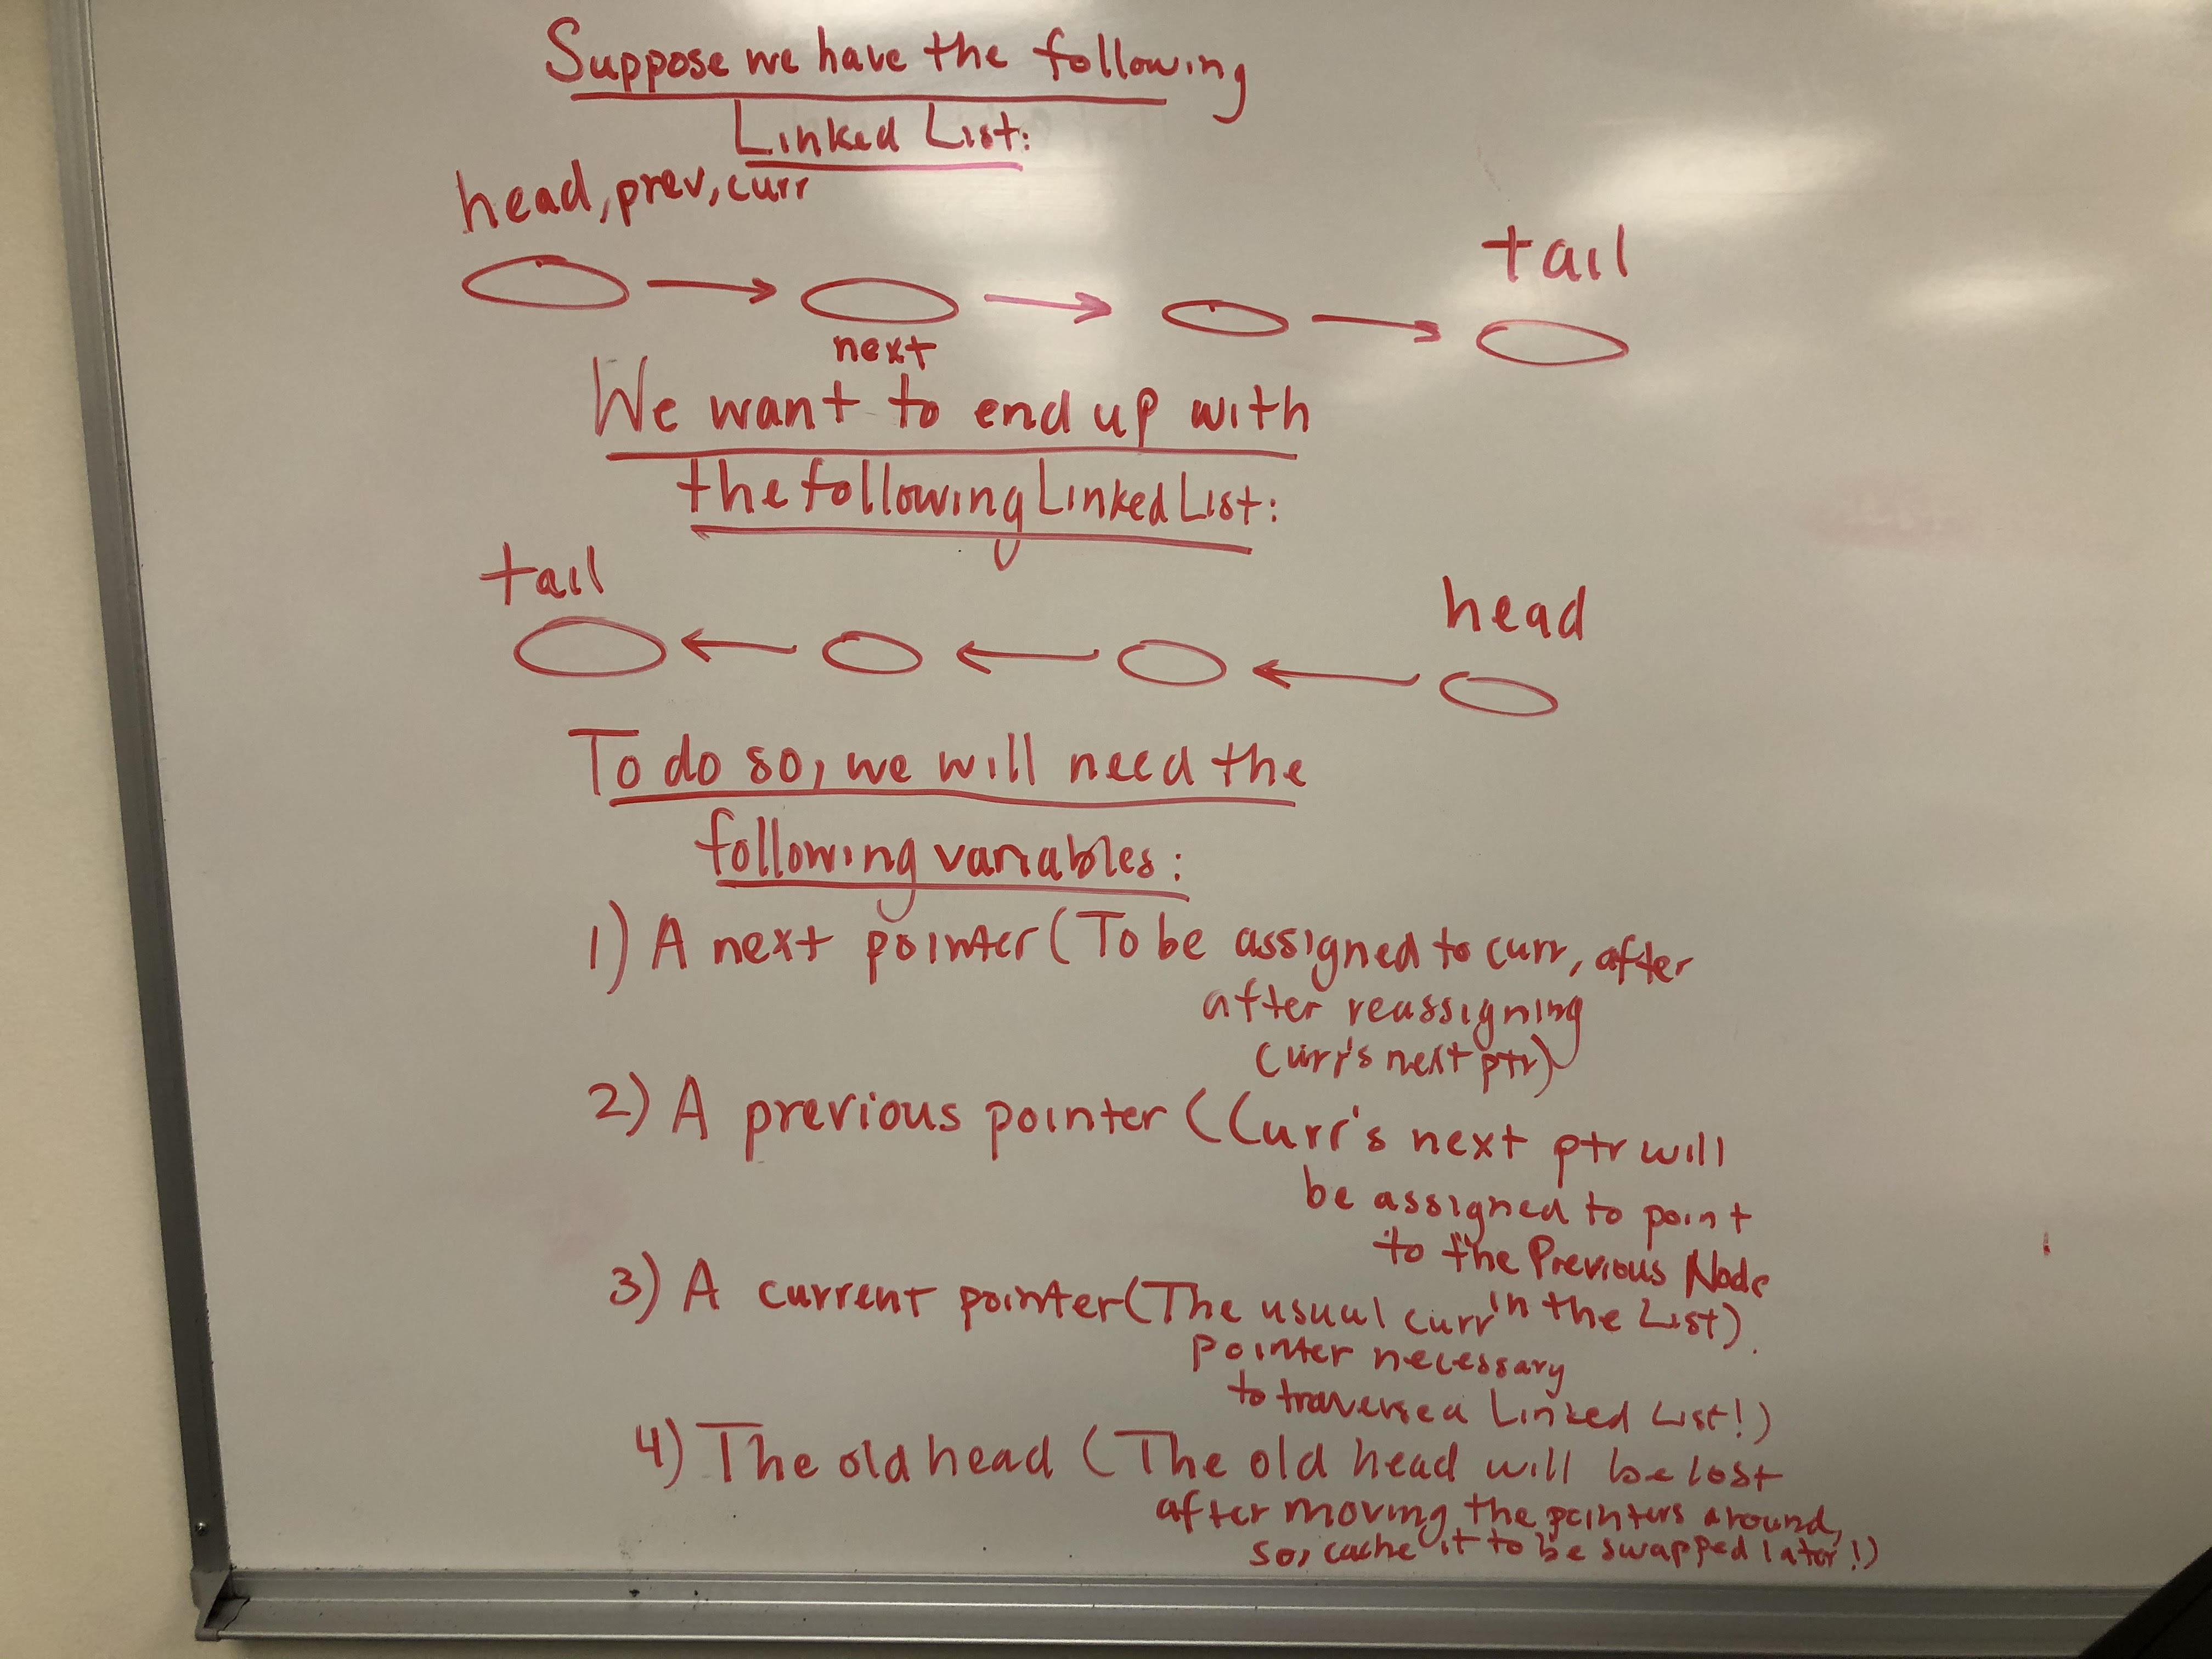 Suppose we have the following
Linked List:
head, prev, curr
tail
next
We want to end up with
the following Linked List:
tail
head
To do so, we will need the
following variables:
1) A next pointer (To be assigned to curr, after
after reassigning
curr's next ptr)
2) A previous pointer (Curr's next ptr will
be assigned to point
to the Previous Node
in the List).
3) A current pointer (The usual curr
pointer necessary
to traverse a Linked List!)
4) The old head (The old head will be lost
after moving the pointers around,
so, cache it to be swapped later!)